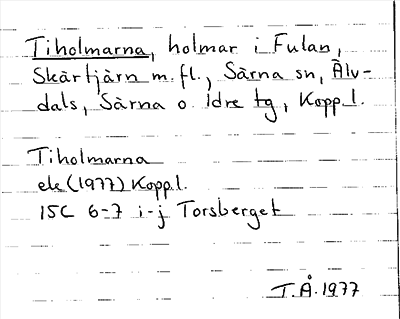 Tiholmarna, holmar i Fulan,
Skärtjärn m.fl., Särna sn, Älv-
dals, Särna o Idre tg, Koppl.
Tiholmarna
ek (1977) Koppl.
15C 6-7 i-j Torsberget
T.Å. 1977